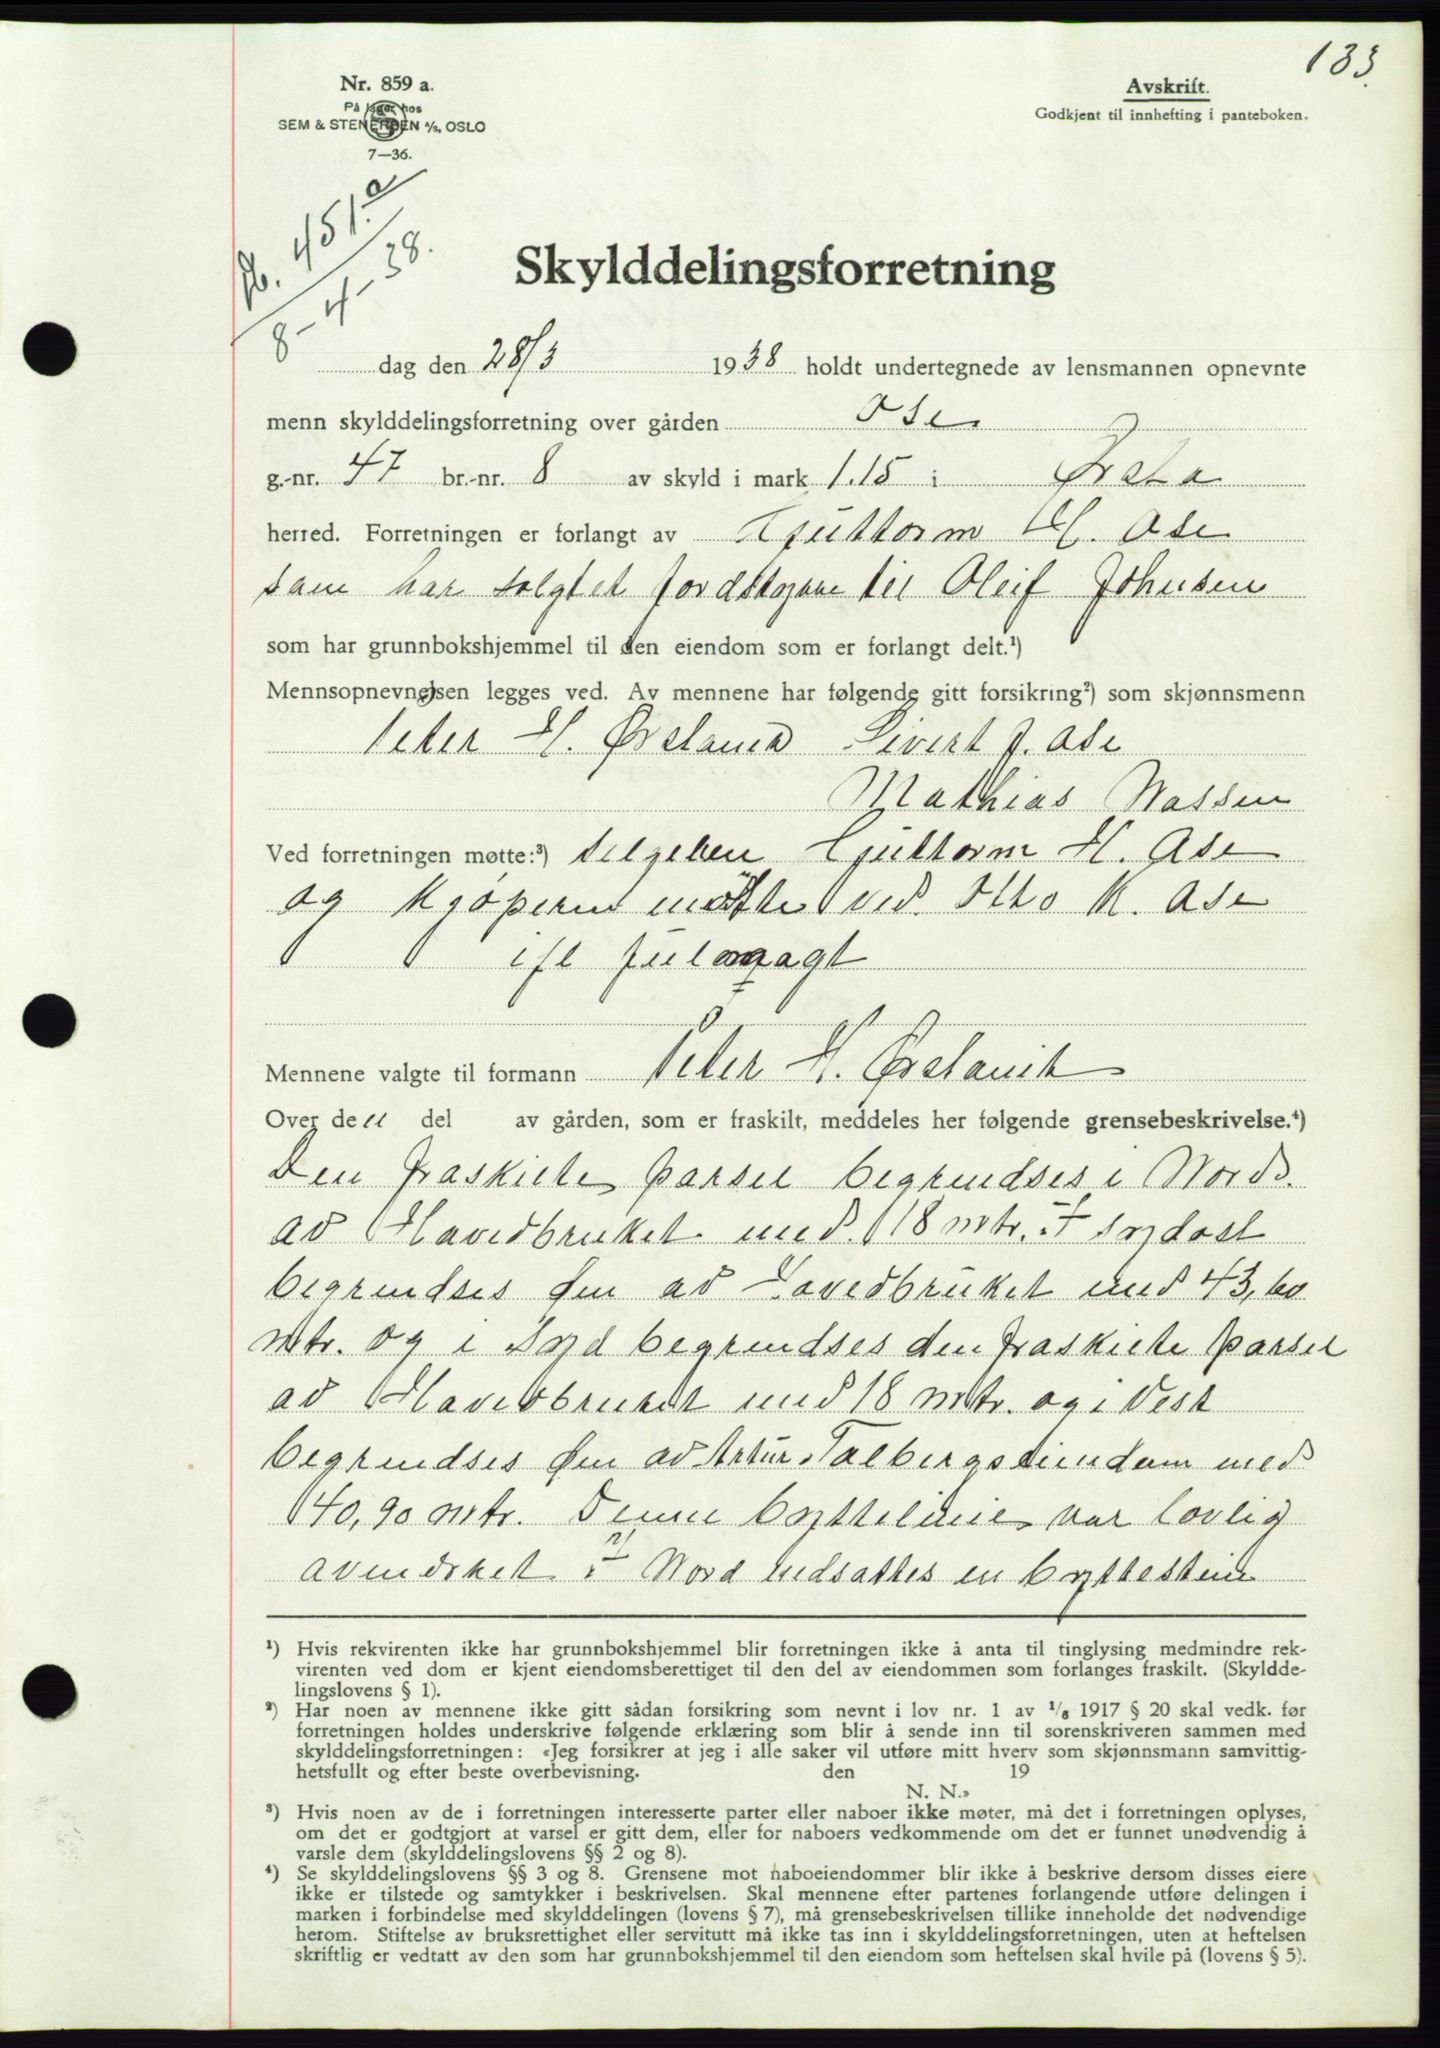 133.
Nr. 859 a.
På lager hos
SEM & STENERSEN A/S, OSLO
7—36.
Avskrift.
Godkjent til innhefting i panteboken.
Jb. 451 a
8-4-38.
Skylddelingsforretning
dag den 28/3 1938 holdt undertegnede av lensmannen opnevnte
menn skylddelingsforretning over gården Ose
g.-nr. 47 br.-nr. 8 av skyld i mark 1.15 i Ørsta
herred. Forretningen er forlangt av Guttorm H. Ose
som har solgt et jordstykke til Oleif Johnsen
som har grunnbokshjemmel til den eiendom som er forlangt delt.¹)
Mennsopnevnelsen legges ved. Av mennene har følgende gitt forsikring²) som skjønnsmenn
Peter H. Ørstavik Sivert J. Ose
Mathias Nassen
Ved forretningen møtte:³) selgeren Guttorm H. Ose
og kjøperen møtte ved Otto K. Ose
ifl fulmagt
Mennene valgte til formann Peter H. Ørstavik
Over den del av gården, som er fraskilt, meddeles her følgende grensebeskrivelse.⁴)
Den fraskilte parsel begrendses i Nord
av Hovedbruket med 18 mtr. I sydost
begrendses den av Hovedbruket med 43,60
mtr. og i syd begrendses den fraskilte parsel
av Hovedbruket med 18 mtr. og i Vest
begrendses den av Artur Talbergs eiendom med
40,90 mtr. Denne byttelinie var lovlig
avmerket. I Nord nedsattes en byttestein
¹) Hvis rekvirenten ikke har grunnbokshjemmel blir forretningen ikke å anta til tinglysing medmindre rek-
virenten ved dom er kjent eiendomsberettiget til den del av eiendommen som forlanges fraskilt. (Skyldde-
lingslovens § 1).
²) Har noen av mennene ikke gitt sådan forsikring som nevnt i lov nr. 1 av 1/6 1917 § 20 skal vedk. før
forretningen holdes underskrive følgende erklæring som blir å sende inn til sorenskriveren sammen med
skylddelingsforretningen: «Jeg forsikrer at jeg i alle saker vil utføre mitt hverv som skjønnsmann samvittig-
hetsfullt og efter beste overbevisning. den 19
N. N.»
³) Hvis noen av de i forretningen interesserte parter eller naboer ikke møter, må det i forretningen oplyses,
om det er godtgjort at varsel er gitt dem, eller for naboers vedkommende om det er funnet unødvendig å
varsle dem (skylddelingslovens §§ 2 og 8).
⁴) Se skylddelingslovens §§ 3 og 8. Grensene mot naboeiendommer blir ikke å beskrive dersom disses eiere
ikke er tilstede og samtykker i beskrivelsen. Skal mennene efter partenes forlangende utføre delingen i
marken i forbindelse med skylddelingen (lovens § 7), må grensebeskrivelsen tillike inneholde det nødvendige
herom. Stiftelse av bruksrettighet eller servitutt må ikke tas inn i skylddelingsforretningen, uten at heftelsen
skriftlig er vedtatt av den som har grunnbokshjemmel til den eiendom som heftelsen skal hvile på (lovens § 5).